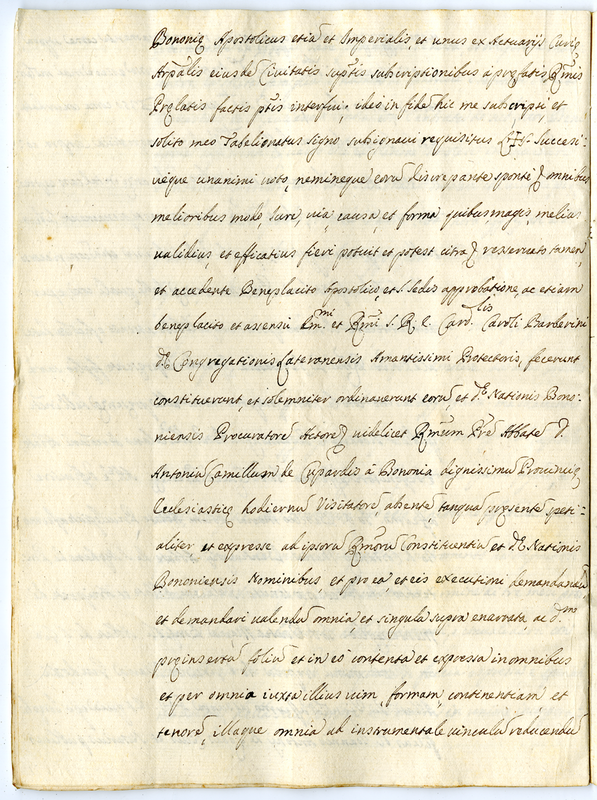 Bononię Apostolicus etiā et Imperialis, et unus ex Actuarijs Curię
Arpālis eiusdē Civitatis suptis subscriptionibus à pręfatis Rmis
Pręlatis factis ptīs interfui; ideo in fidē hic me subscripsi, et
solito meo Tabelionatus signo subsignavi requisitus Succesi=
uèque unanimi uoto, nemineque eorū discrepante sponte et omnibus
melioribus modo, Iure, uia, causa, et forma quibus magis, melius
validius, et efficatius fieri potuit et potest citra, resservato tamen,
et accedente Beneplacito Apostolico, et S. Sedis approbatione, ac etiam
beneplacito et assensu Emi. et Rmi S. R. E. Card.lis Caroli Barberini
dę Congregationis Lateranensis Amantissimi Protectoris, fecerunt
constituerunt, et solemniter ordinaverunt eorū, et dę Nationis Bono=
niensis Procuratorē Actorē videlicet Rmum Prē Abbatē D.
Antoniū Camillum de Cupardis à Bononia dignissimū Provincię
Ecclesiasticę hodiernū Visitatorē, absentē, tanquā pręsentē speti=
aliter et expresse ad ipsorū Rmorū Constituentiū et dę Nationis
Bononiensis Nominibus, et pro ea, et eis executioni demandandū
et demandari valendū omnia, et singula supra enarrata, ac d.mo
pręinsertū foliū et in eo contenta et expressa in omnibus
et per omnia iuxta illius uim, formam, continentiam, et
tenorē, illaque omnia ad instrumentale vinculū reducendū